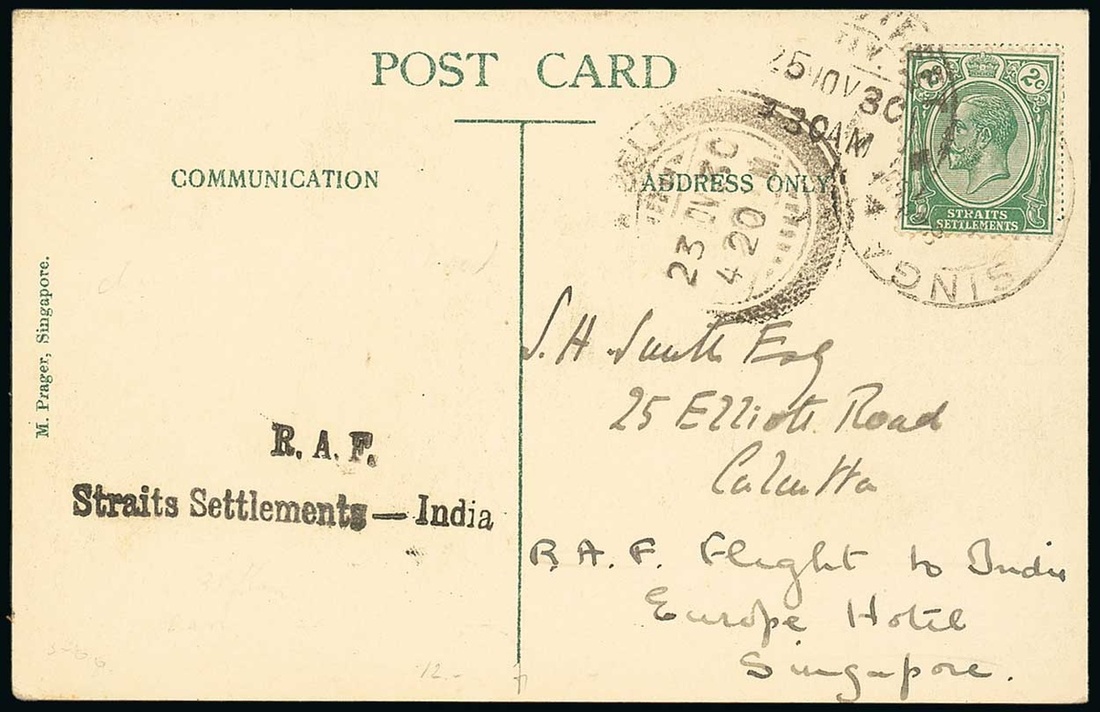 POST CARD
COMMUNICATION
ADDRESS ONLY
M. Prager, Singapore.
R. A. F.
Straits Settlements — India
25 NOV 30
30AM
SINGA
DELHI
23 NOV 30
4 20
2c 2c
STRAITS
SETTLEMENTS
S. H. Smith Esq
25 Elliott Road
Calcutta
R. A. F. Flight to India
Europe Hotel
Singapore.
12